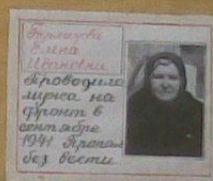 Елена
Ивановна
Проводила
мужа на
фронт в
сентябре
1941 Пропал
без вести